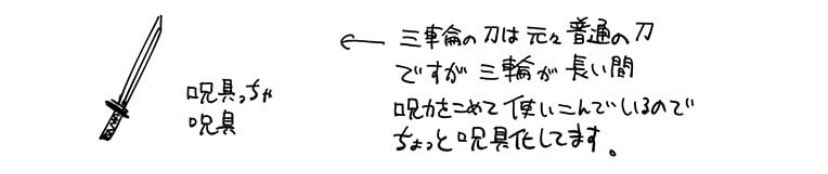 呪具っちゃ
呪具
← 三輪の刀は元々普通の刀
ですが三輪が長い間
呪力をこめて使いこんでいるので
ちょっと呪具化してます。